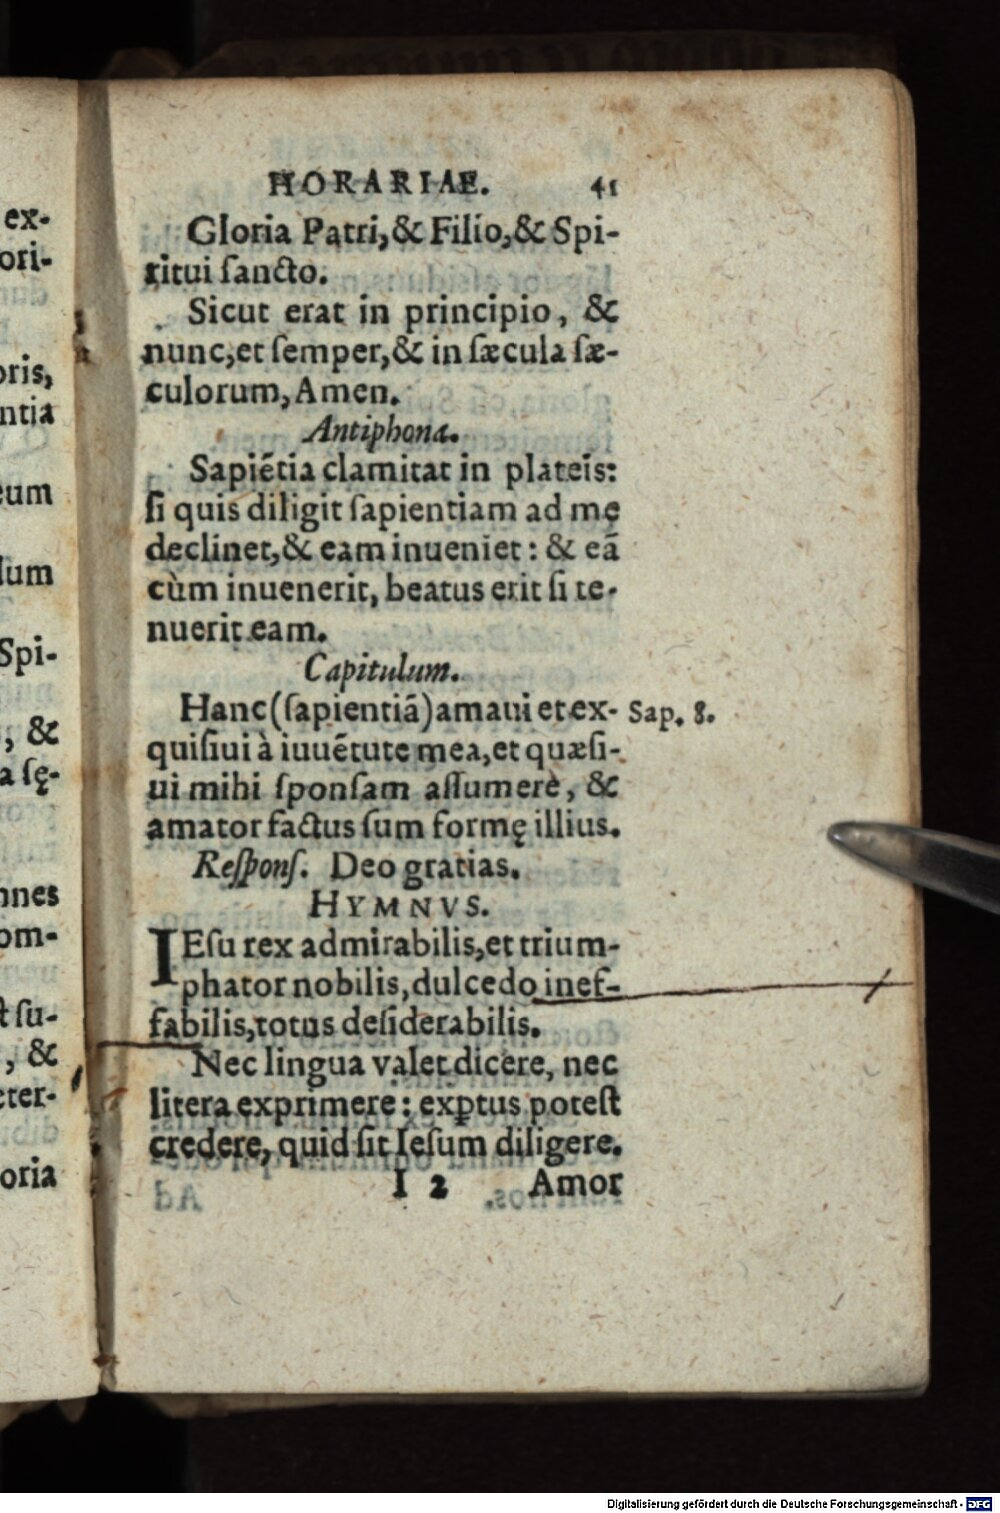 HORARIAE. 41
Gloria Patri, & Filio, & Spi-
ritui ſancto.
Sicut erat in principio, &
nunc, et ſemper, & in ſæcula ſæ-
culorum, Amen.
Antiphona.
Sapiẽtia clamitat in plateis:
ſi quis diligit ſapientiam ad me
declinet, & eam inueniet: & eã
cùm inuenerit, beatus erit ſi te-
nuerit eam.
Capitulum.
Hanc (ſapientiã) amaui et ex- Sap. 8.
quiſiui à iuuẽtute mea, et quæſi-
ui mihi ſponſam aſſumere, &
amator factus ſum formę illius.
Reſponſ. Deo gratias.
HYMNVS.
IEſu rex admirabilis, et trium-
phator nobilis, dulcedo inef-
fabilis, totus deſiderabilis.
Nec lingua valet dicere, nec
litera exprimere: exꝑtus poteſt
credere, quid ſit Ieſum diligere.
I 2 Amor
ex-
ori-
oris,
ntia
eum
dum
Spi-
, &
a ſę-
nnes
om-
t ſu-
, &
eter-
oria
Digitalisierung gefördert durch die Deutsche Forschungsgemeinschaft - DFG